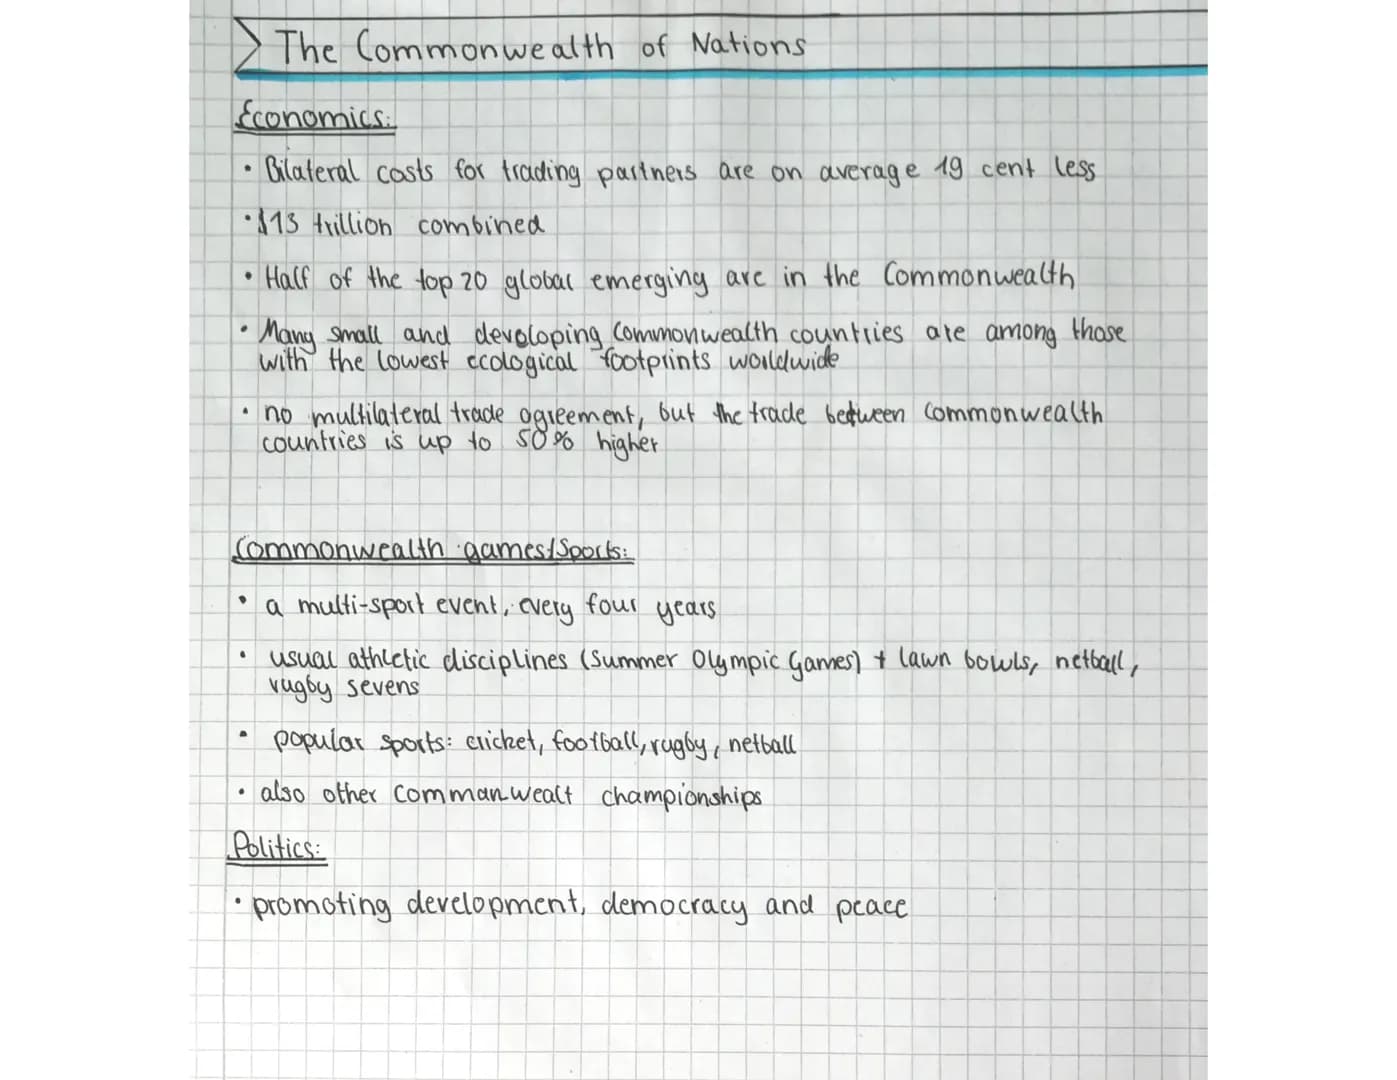 The Commonwealth of Nations
Economics:
• Bilateral costs for trading partners are on average 19 cent less
• $13 trillion combined
• Half of the top 20 global emerging are in the Commonwealth
• Many small and developing Commonwealth countries are among those
with the lowest ecological footprints worldwide
• no multilateral trade agreement, but the trade between Commonwealth
countries is up to 50% higher
Commonwealth games/Sports:
• a multi-sport event, every four years
• usual athletic disciplines (Summer Olympic Games) + lawn bowls, netball,
rugby sevens
• popular sports: cricket, football, rugby, netball
• also other Commanwealt championships
Politics:
• promoting development, democracy and peace